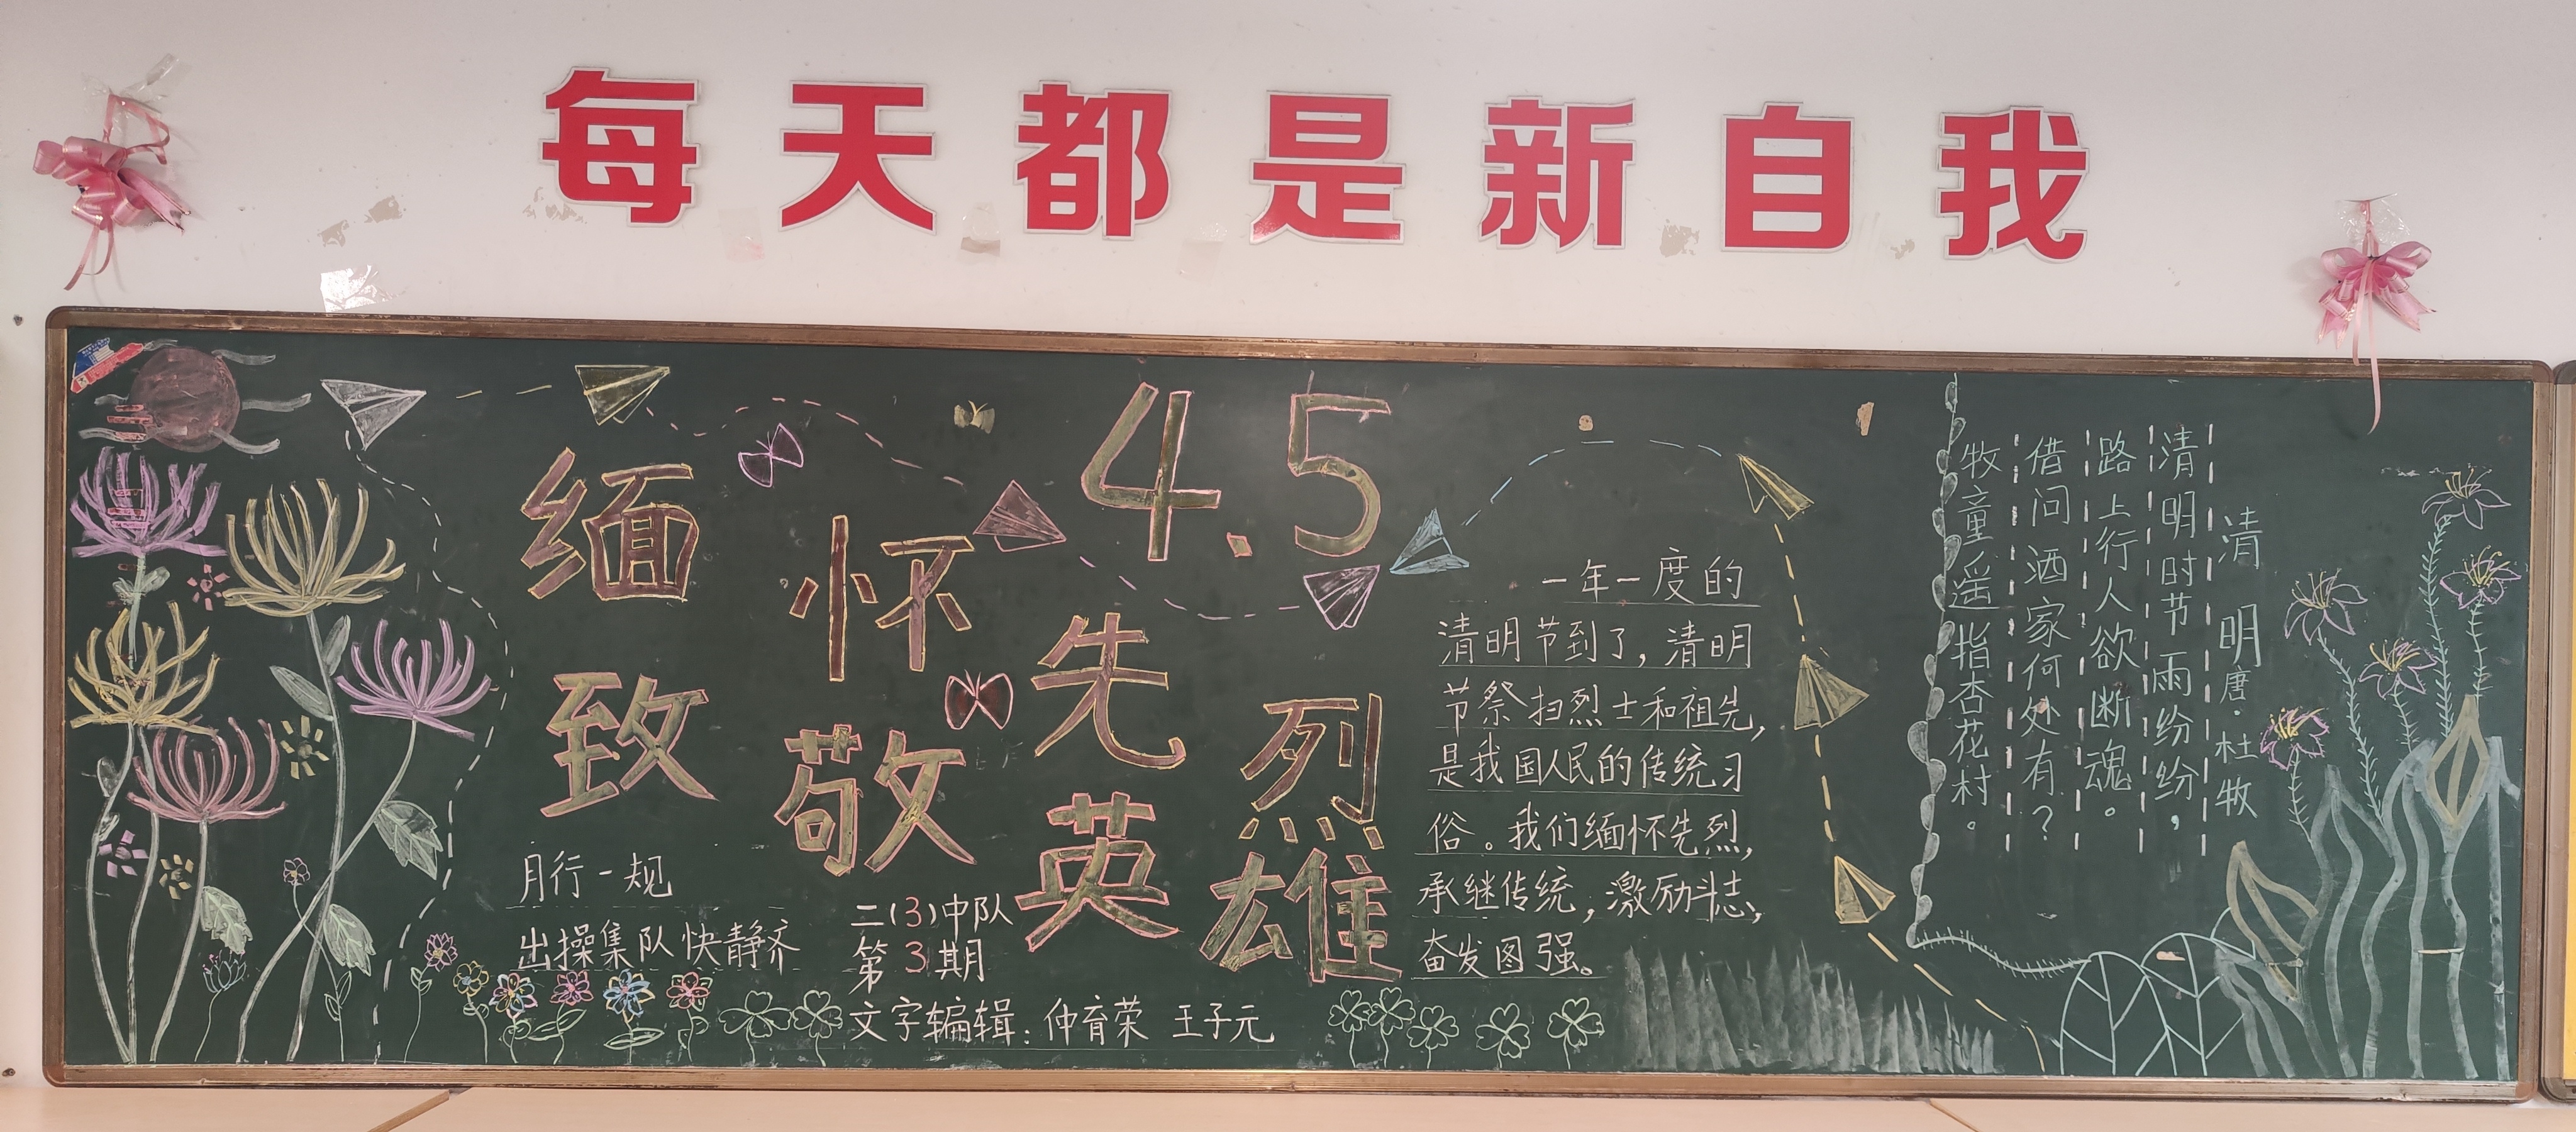 每天都是新自我
4.5
缅怀先烈
致敬英雄
月行一规
出操集队快静齐
二(3)中队
第3期
文字编辑：仲育荣 王子元
一年一度的
清明节到了，清明
节祭扫烈士和祖先，
是我国人民的传统习
俗。我们缅怀先烈，
承继传统，激励斗志，
奋发图强。
清 明 唐·杜牧
清明时节雨纷纷，
路上行人欲断魂。
借问酒家何处有？
牧童遥指杏花村。